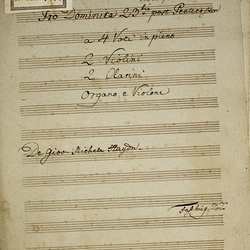 Pro Dominica 23tia post Pentecosten
a 4 Voci in pieno
2 Violini
2 Clarini
Organo e Violone
De Giov. Michele Haydn.